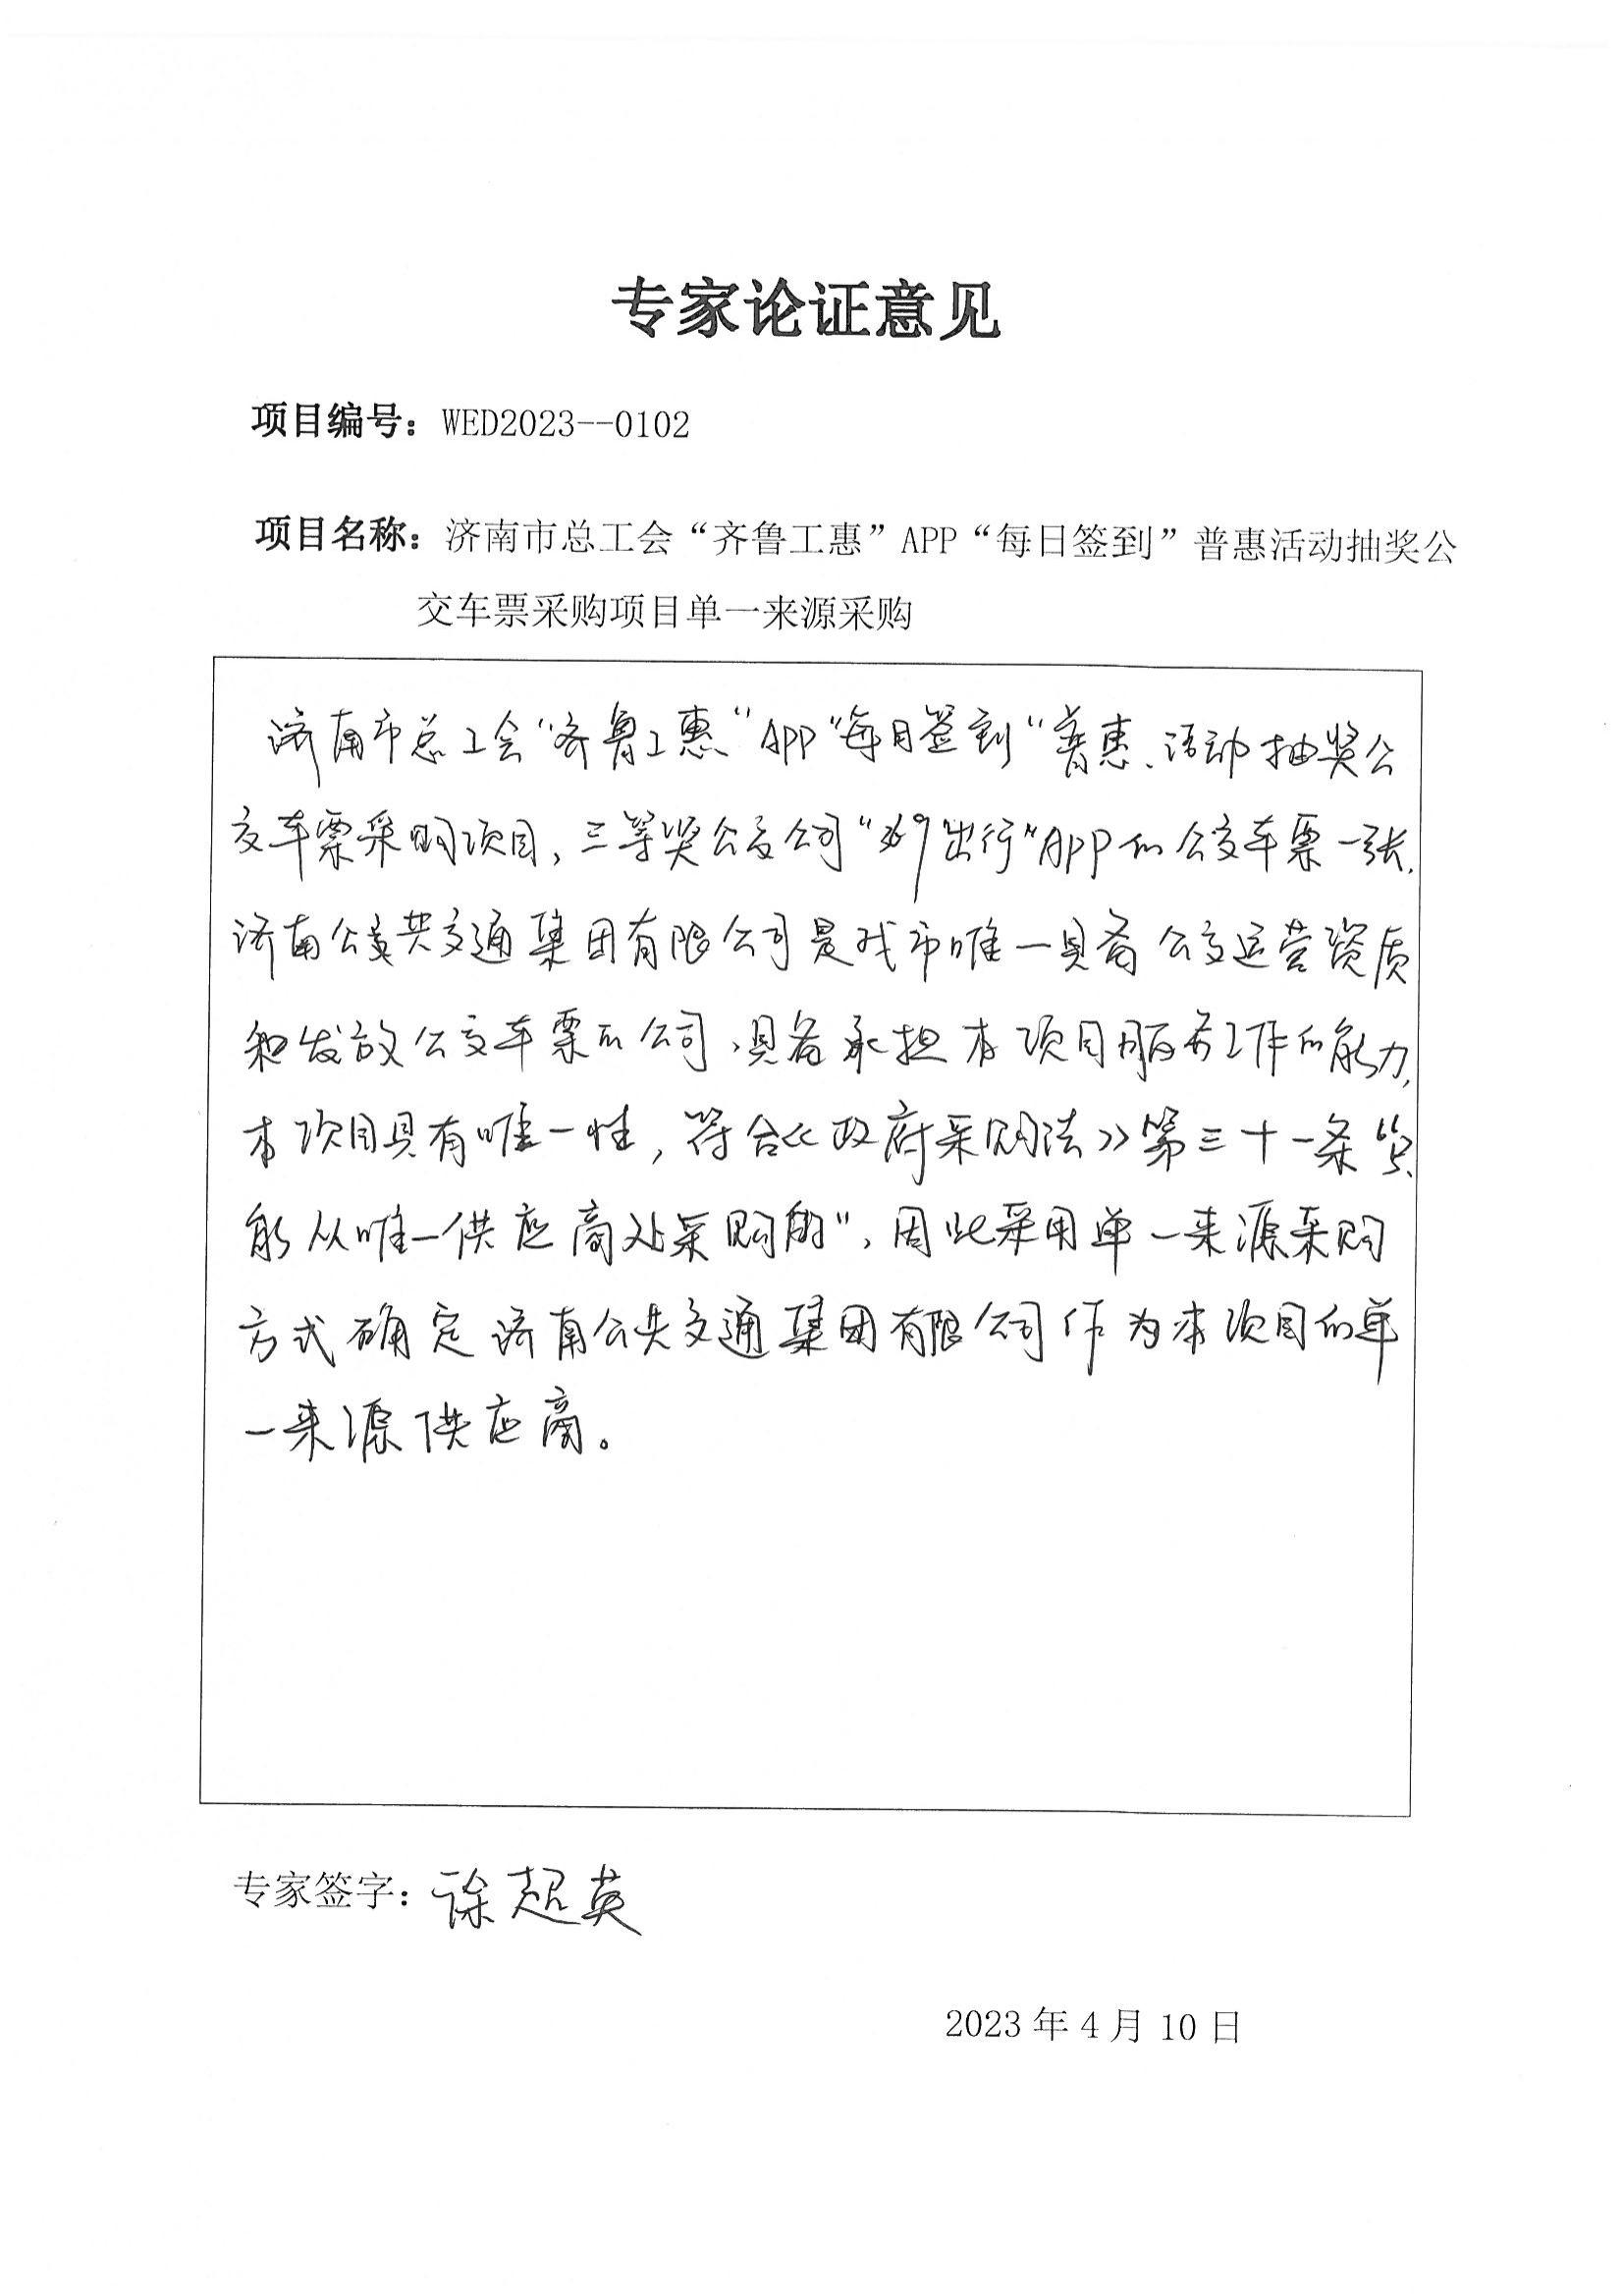 专家论证意见
项目编号：WED2023--0102
项目名称：济南市总工会“齐鲁工惠”APP“每日签到”普惠活动抽奖公
交车票采购项目单一来源采购
济南市总工会“齐鲁工惠”APP“每日签到”普惠、活动抽奖公
交车票采购项目，三等奖公交公司“369出行”APP的公交车票一张，
济南公共交通集团有限公司是我市唯一具备公交运营资质
和发放公交车票的公司，具备承担本项目服务工作的能力，
本项目具有唯一性，符合《政府采购法》第三十一条“只
能从唯一供应商处采购的”，因此采用单一来源采购
方式确定济南公共交通集团有限公司作为本项目的单
一来源供应商。
专家签字：徐超英
2023年4月10日